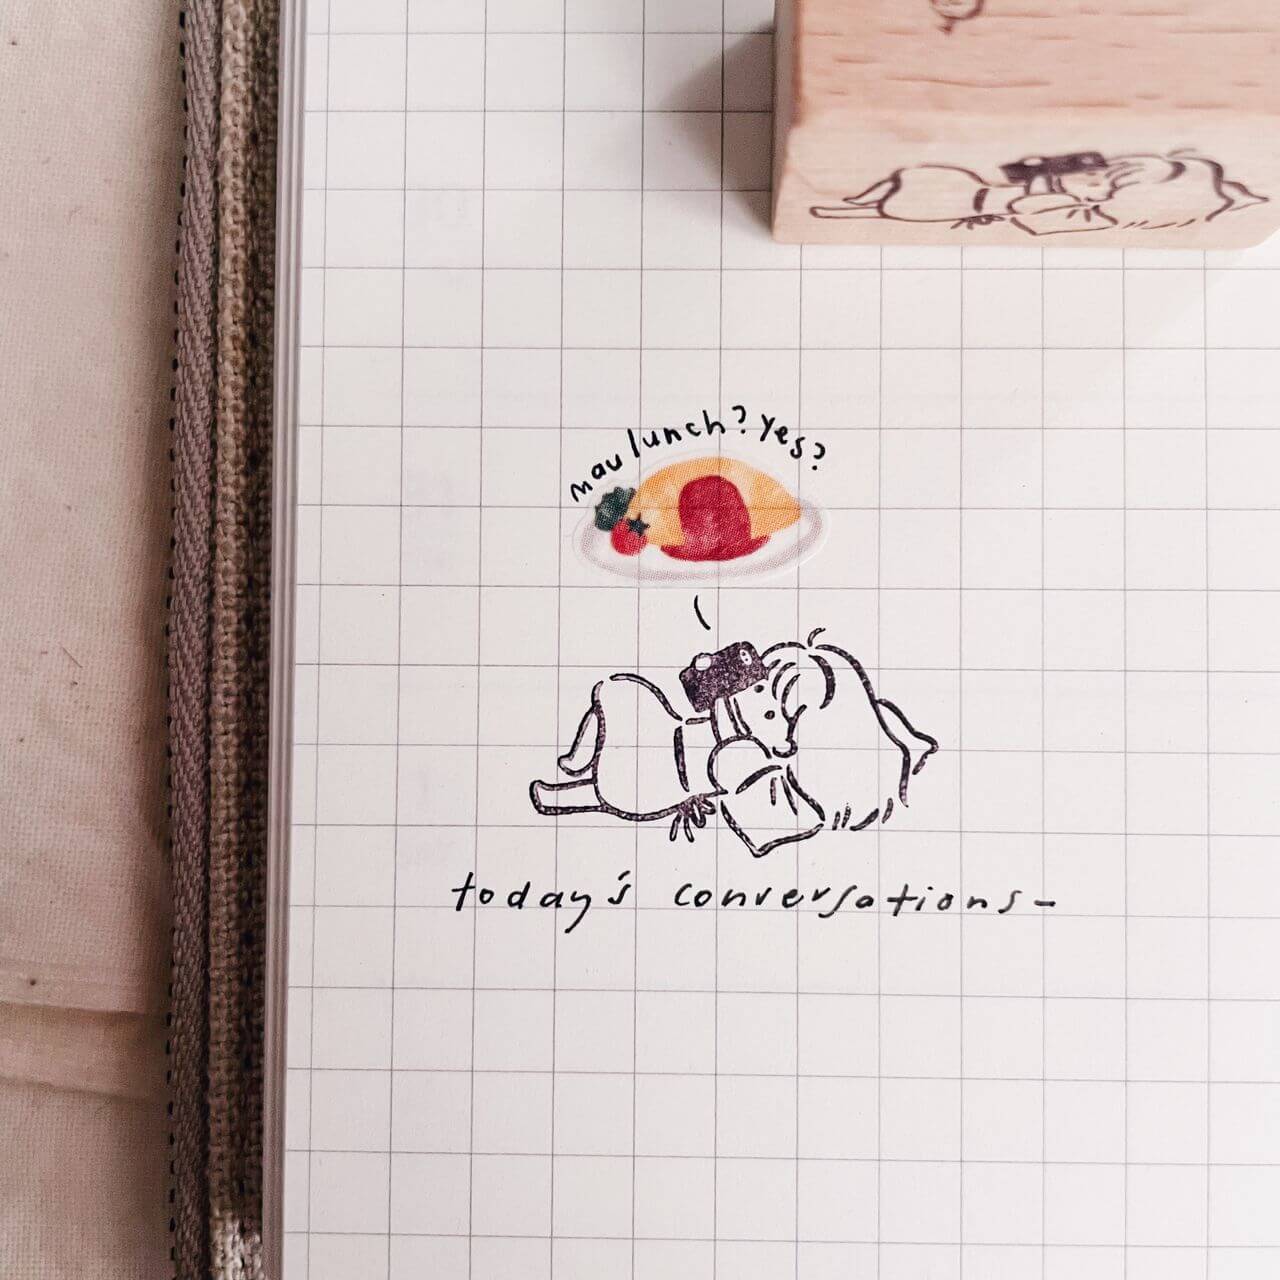 mau lunch? yes?
today's conversations-